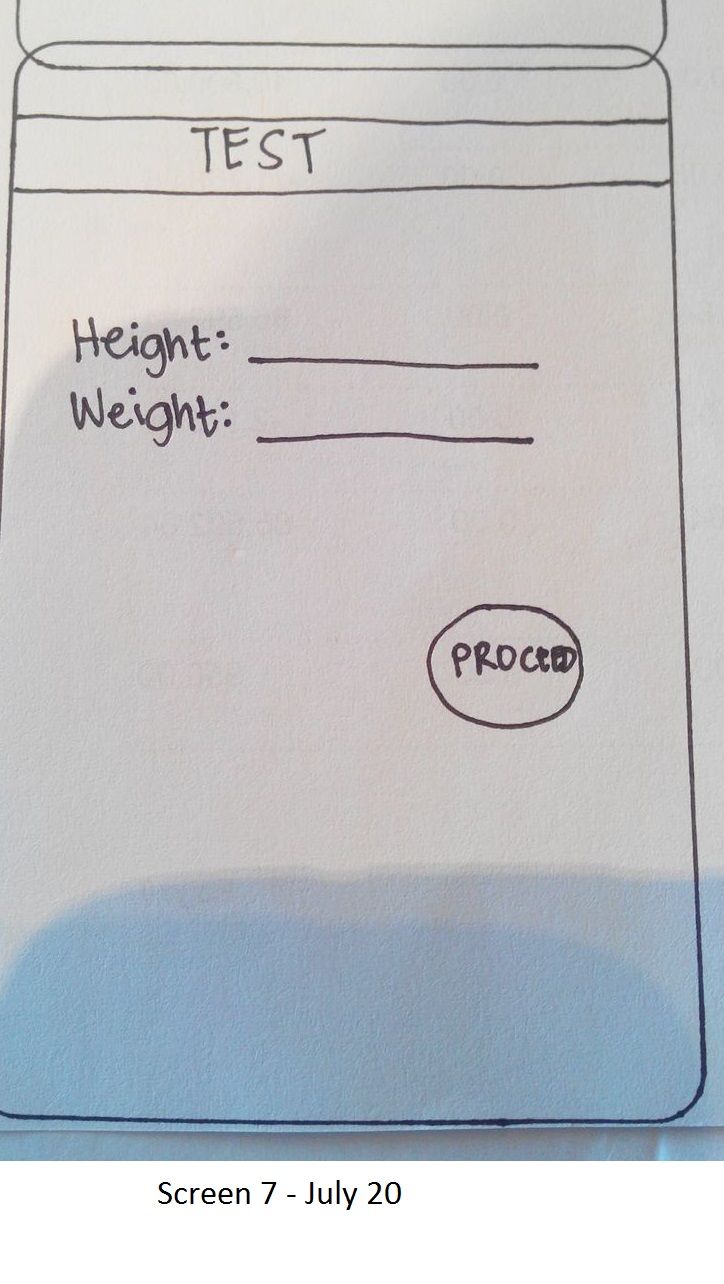 TEST
Height:
Weight:
PROCEED
Screen 7 - July 20